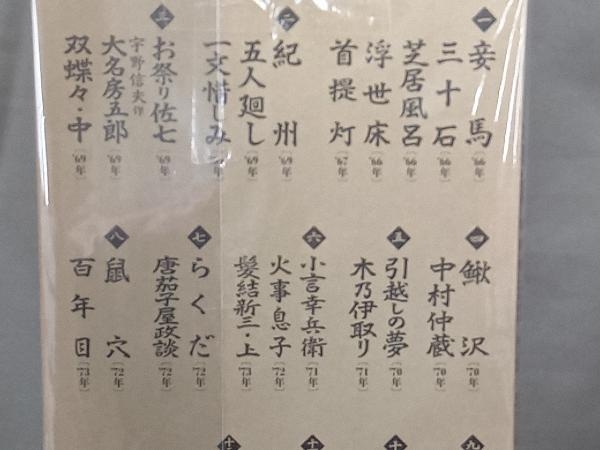 一 妾馬〔'66年〕
三十石〔'66年〕
芝居風呂〔'66年〕
浮世床〔'66年〕
首提灯〔'67年〕
二 紀州〔'69年〕
五人廻し〔'69年〕
一文惜しみ
三 お祭り佐七〔'69年〕
宇野信夫作
大名房五郎〔'69年〕
双蝶々・中〔'69年〕
四 鰍沢〔'70年〕
中村仲蔵〔'70年〕
五 引越しの夢〔'70年〕
木乃伊取り〔'71年〕
六 小言幸兵衛〔'71年〕
火事息子〔'72年〕
髪結新三・上〔'73年〕
七 らくだ〔'72年〕
唐茄子屋政談〔'72年〕
八 鼠穴〔'72年〕
百年目〔'73年〕
九
十
十
十